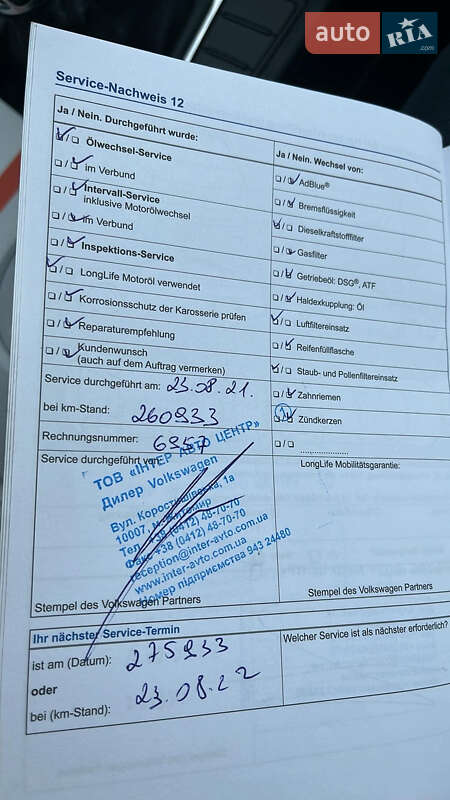 auto RIA .com
Service-Nachweis 12
Ja / Nein. Durchgeführt wurde:
Ölwechsel-Service
im Verbund
Intervall-Service
inklusive Motorölwechsel
im Verbund
Inspektions-Service
LongLife Motoröl verwendet
Korrosionsschutz der Karosserie prüfen
Reparaturempfehlung
Kundenwunsch
(auch auf dem Auftrag vermerken)
Ja / Nein. Wechsel von:
AdBlue®
Bremsflüssigkeit
Dieselkraftstofffilter
Gasfilter
Getriebeöl: DSG®, ATF
Haldexkupplung: Öl
Luftfiltereinsatz
Reifenfüllflasche
Staub- und Pollenfiltereinsatz
Zahnriemen
Zündkerzen
Service durchgeführt am: 23.08.21.
bei km-Stand: 260933
Rechnungsnummer: 6957
Service durchgeführt von:
ТОВ «ІНТЕР АВТО ЦЕНТР»
Дилер Volkswagen
Вул. Коростишівська, 1а
10007, м. Житомир
Тел. +38 (0412) 48-70-70
Факс +38 (0412) 48-70-70
reception@inter-avto.com.ua
www.inter-avto.com.ua
Номер підприємства 943 24480
Stempel des Volkswagen Partners
LongLife Mobilitätsgarantie:
Stempel des Volkswagen Partners
Ihr nächster Service-Termin
ist am (Datum): 275933
oder
bei (km-Stand): 23.08.22
Welcher Service ist als nächster erforderlich?